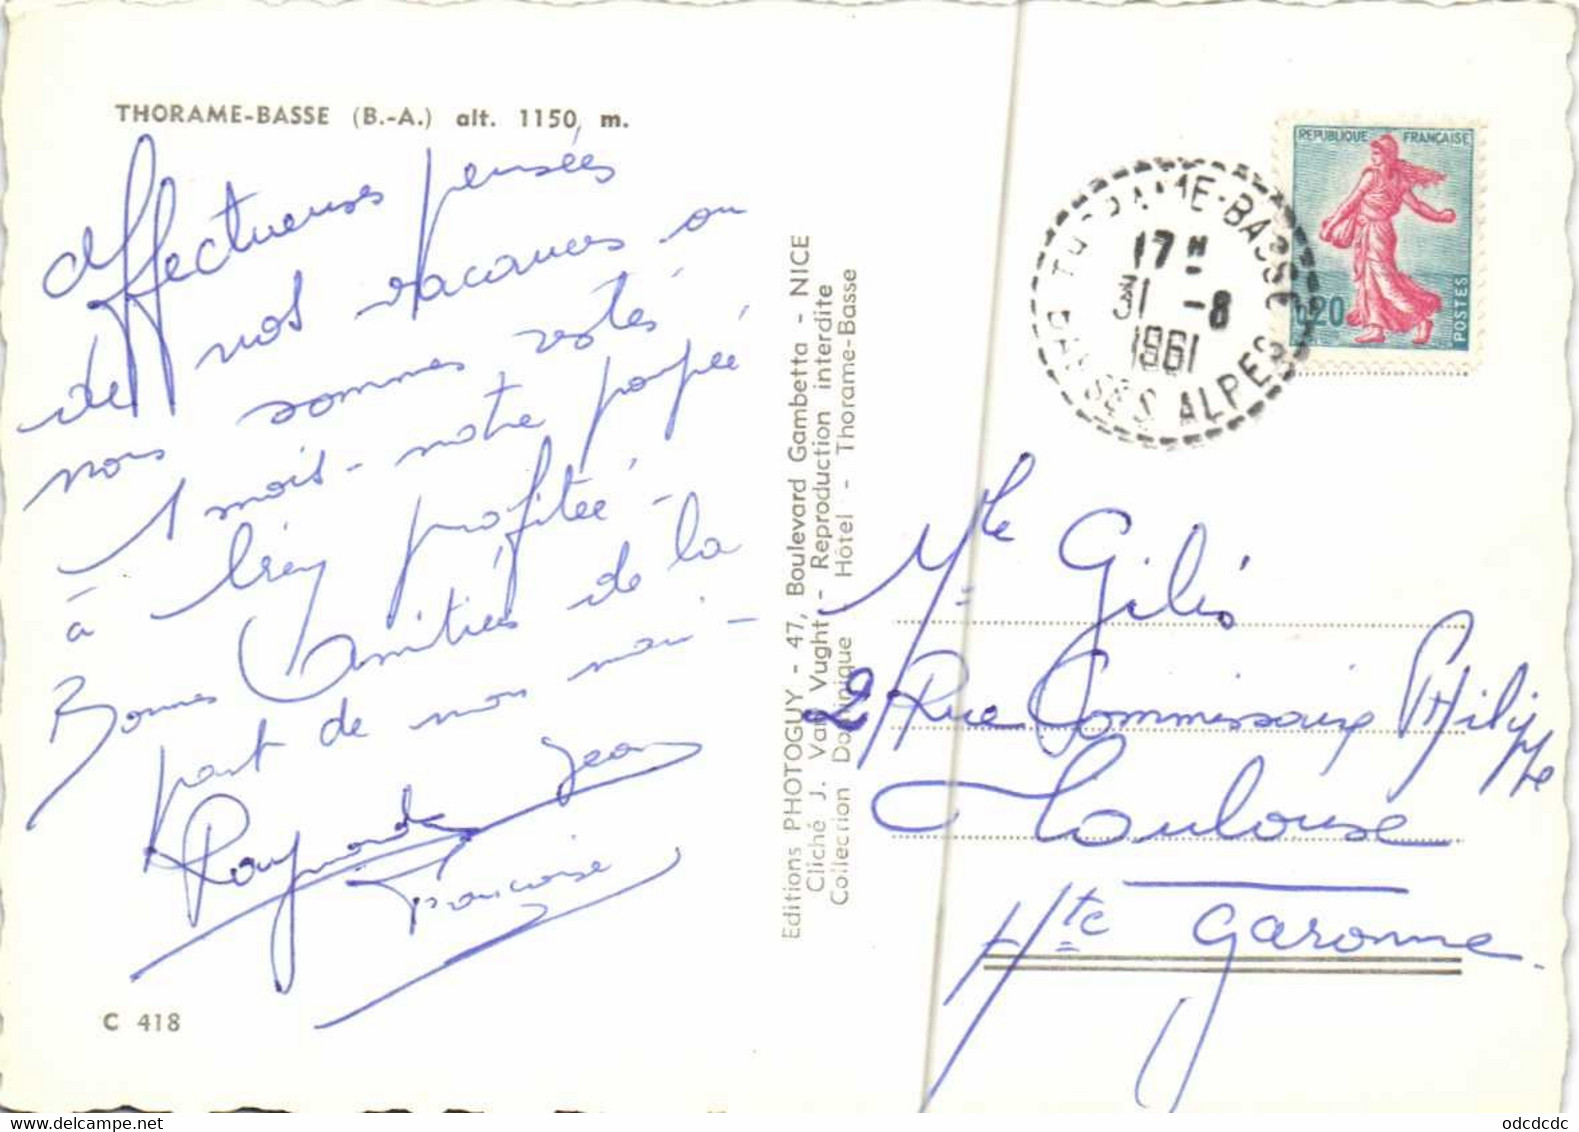 THORAME-BASSE (B.-A.) alt. 1150 m.
Affectueuses pensées
de nos vacances ou
nous sommes restés
1 mois - notre poupée
à bien profitée -
Bonnes Amitiés de la
part de mon mari -
Raymonde Jean
Françoise
C 418
Editions PHOTOGUY - 47, Boulevard Gambetta - NICE
Cliché J. Van Vught - Reproduction interdite
Collection Dominique Hôtel - Thorame-Basse
REPUBLIQUE FRANÇAISE
0,20
POSTES
THORAME-BASSE
17 H
31 -8
1961
BASSES ALPES
Mlle Gilis
2 Rue Commissaire Philippe
Toulouse
Hte Garonne.
odcdcdc